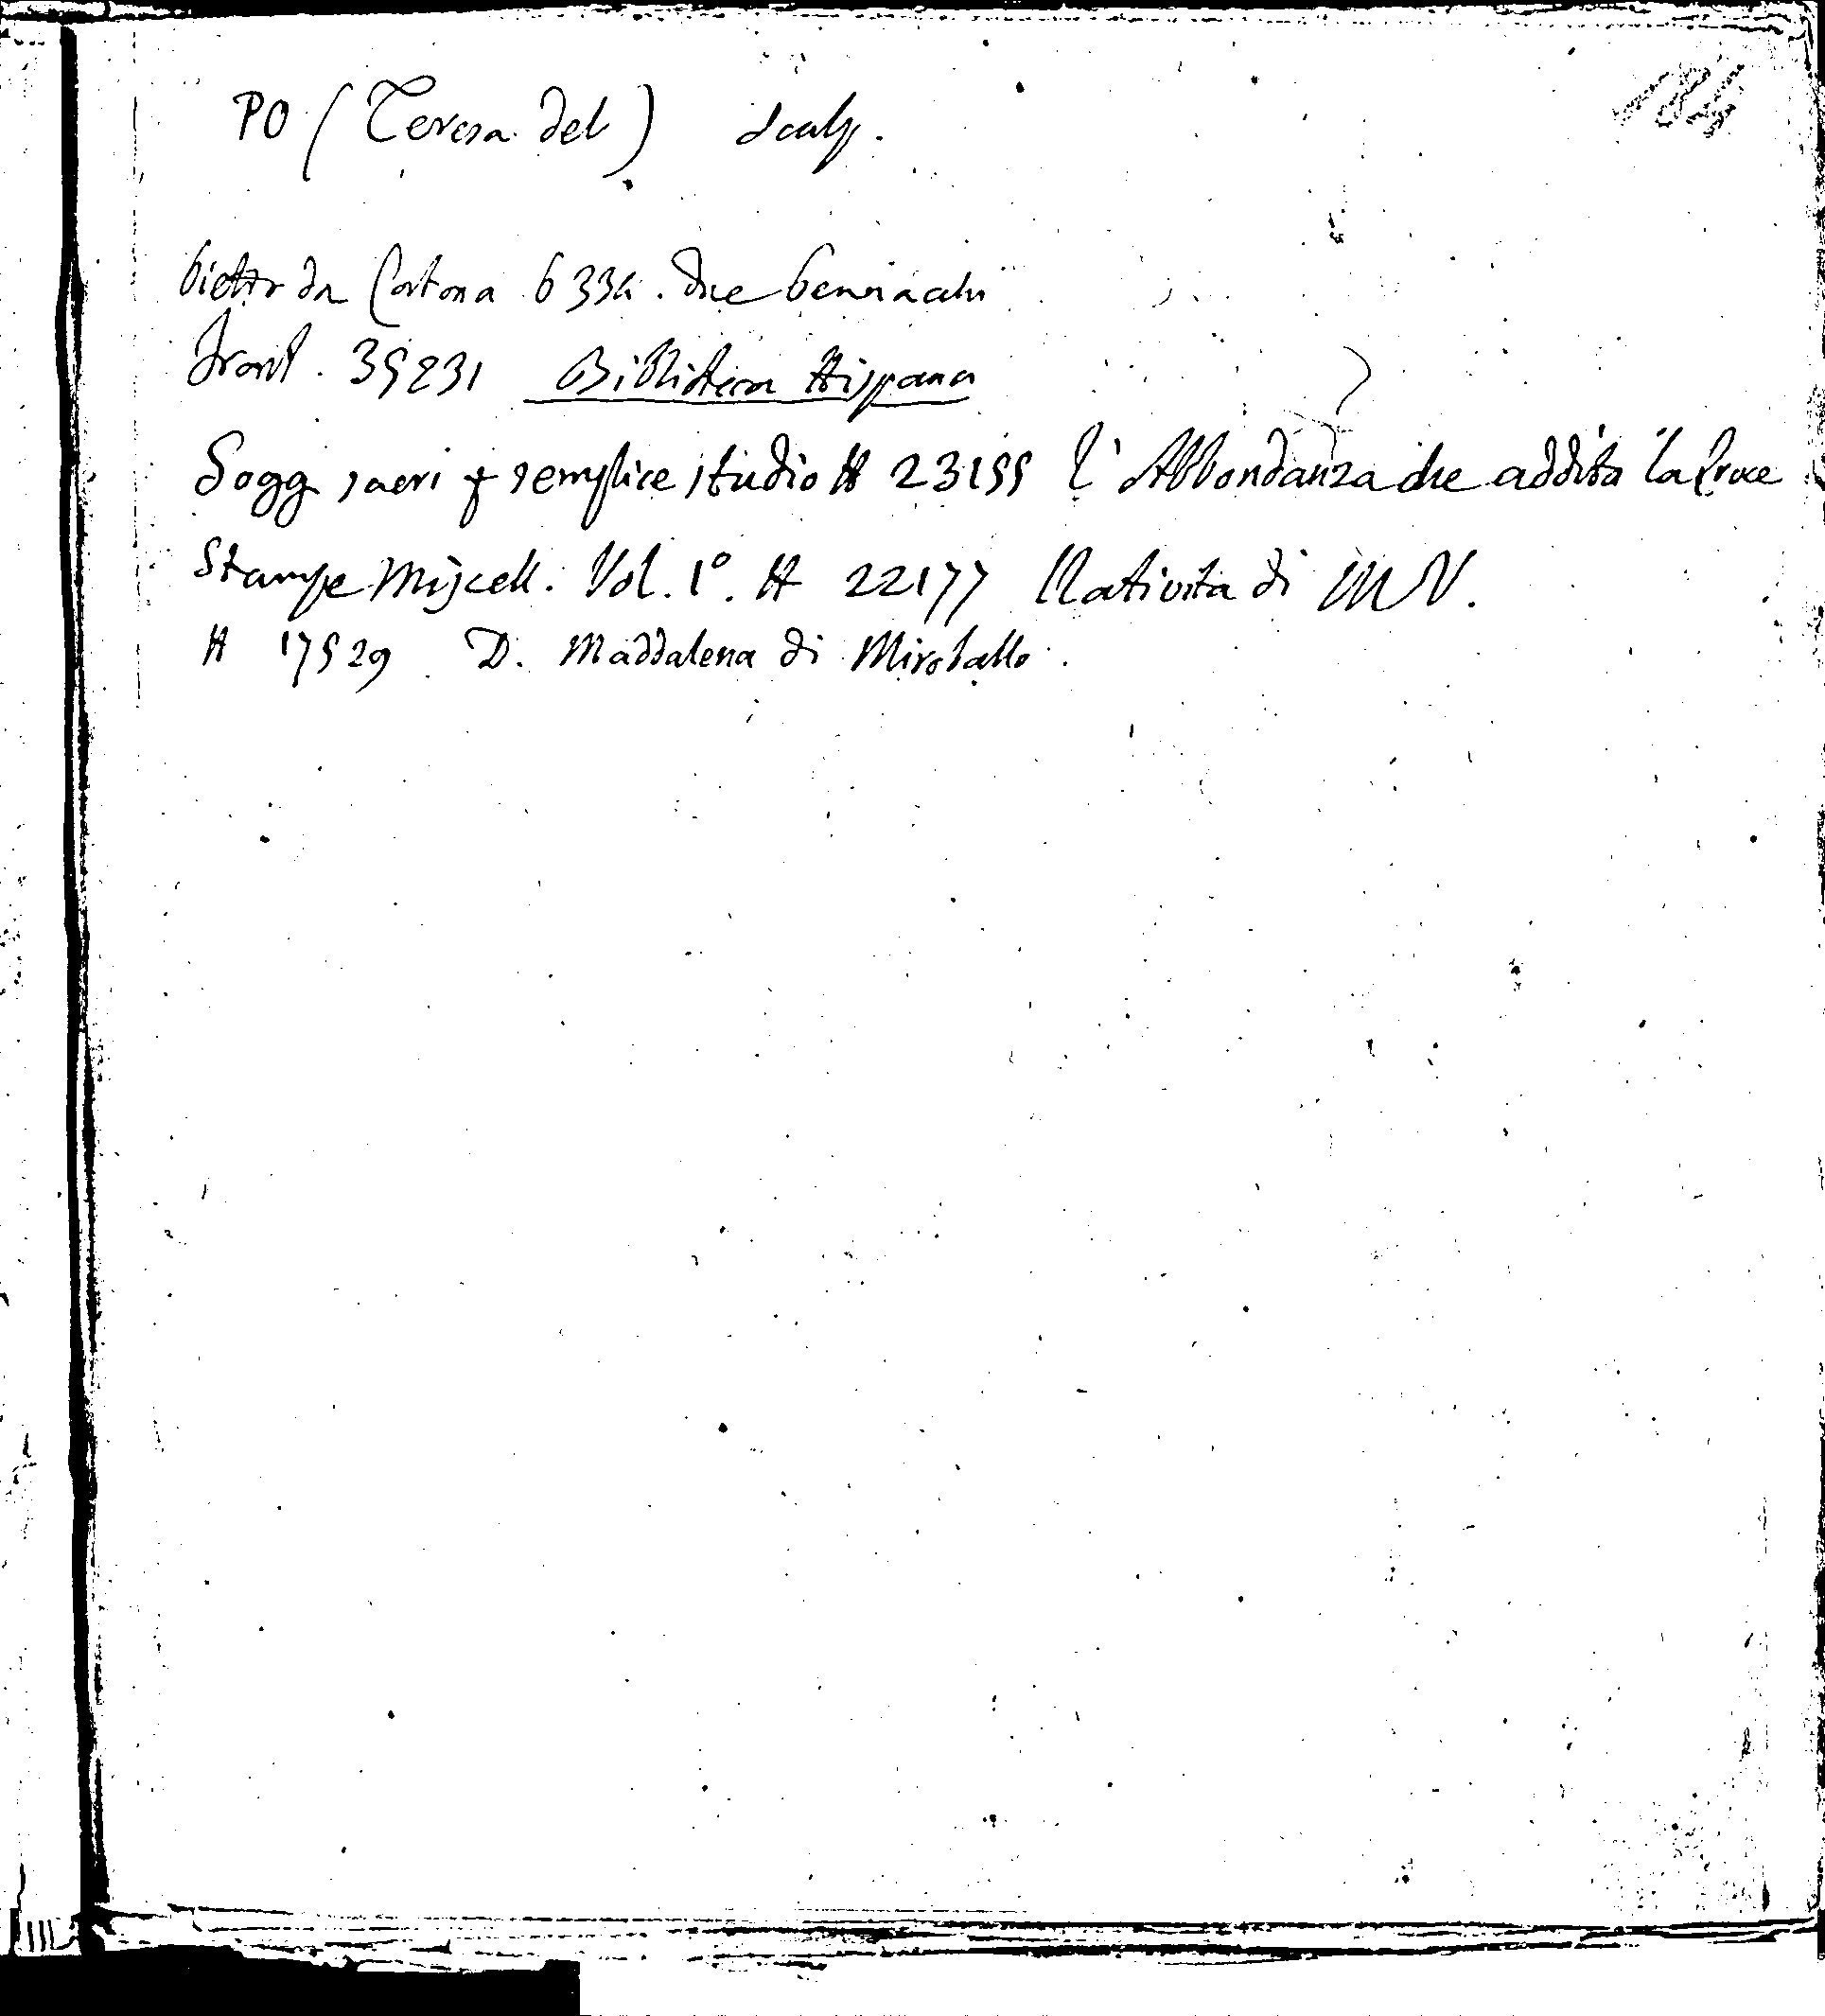 184
PO (Teresa del) sculp.
Pietro da Cortona 6334. due
Front. 35231 Biblioteca Hispana
Sogg. sacri p semplice studio H 23155 l'Abbondanza che addita la Croce
Stampe Miscell. Vol. 1º. H 22177 Natività di M V.
H 17529 D. Maddalena di Miroballo.